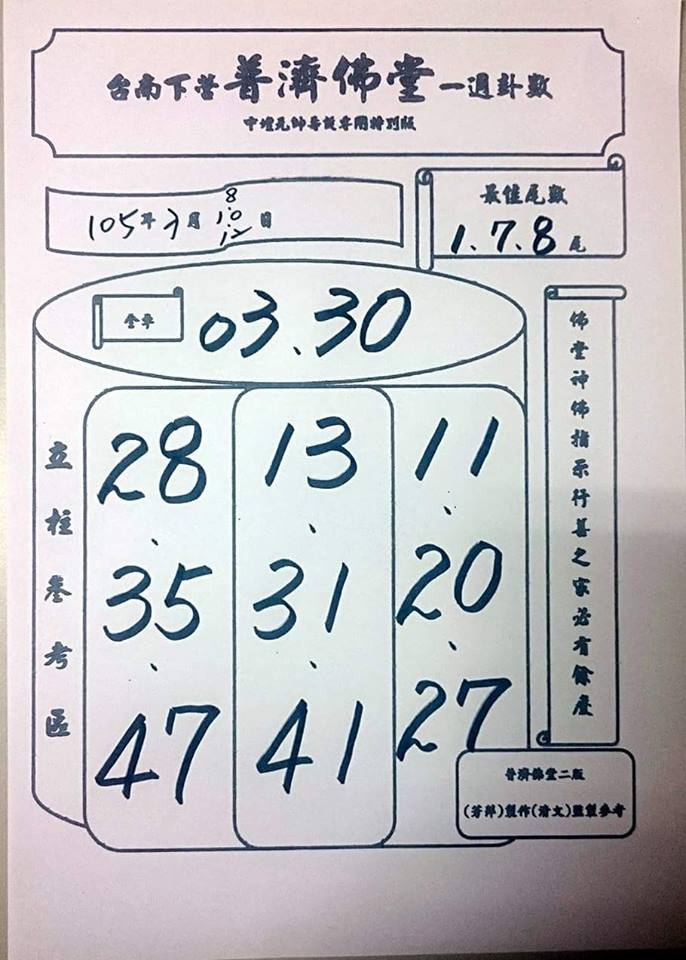 台南下營普濟佛堂一週卦數
中壇元帥專開特別版
105年3月8.10.12日
最佳尾數
1.7.8尾
全車
03、30
立柱參考區
28、35、47
13、31、41
11、20、27
佛堂神佛指示行善之家必有餘慶
普濟佛堂二版
(芳萍)製作(清文)監製參考